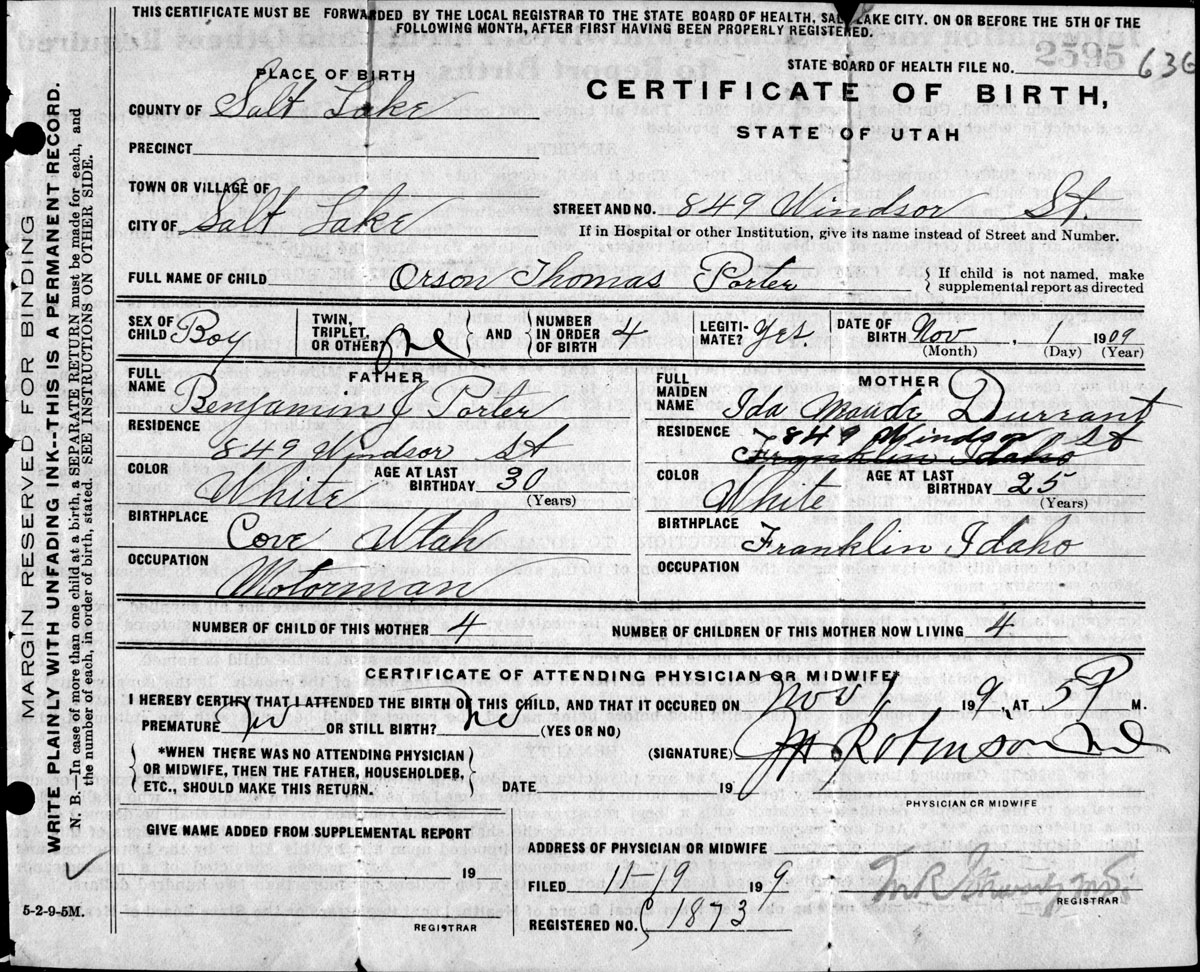 THIS CERTIFICATE MUST BE FORWARDED BY THE LOCAL REGISTRAR TO THE STATE BOARD OF HEALTH, SALT LAKE CITY. ON OR BEFORE THE 5TH OF THE
FOLLOWING MONTH, AFTER FIRST HAVING BEEN PROPERLY REGISTERED.
2595
STATE BOARD OF HEALTH FILE NO. 636
PLACE OF BIRTH
CERTIFICATE OF BIRTH,
STATE OF UTAH
COUNTY OF Salt Lake
PRECINCT
TOWN OR VILLAGE OF
CITY OF Salt Lake
STREET AND NO. 849 Windsor St.
If in Hospital or other Institution, give its name instead of Street and Number.
FULL NAME OF CHILD Orson Thomas Porter
{ If child is not named, make
supplemental report as directed
SEX OF CHILD Boy
TWIN, TRIPLET, OR OTHER? One } AND { NUMBER IN ORDER OF BIRTH 4
LEGITIMATE? Yes.
DATE OF BIRTH Nov , 1 1909
(Month) (Day) (Year)
FATHER
FULL NAME Benjamin J Porter
RESIDENCE 849 Windsor St
COLOR White
AGE AT LAST BIRTHDAY 30
(Years)
BIRTHPLACE Cove Utah
OCCUPATION Motorman
MOTHER
FULL MAIDEN NAME Ida Maude Durrant
RESIDENCE 849 Windsor St
Franklin Idaho
COLOR White
AGE AT LAST BIRTHDAY 25
(Years)
BIRTHPLACE Franklin Idaho
OCCUPATION
NUMBER OF CHILD OF THIS MOTHER 4
NUMBER OF CHILDREN OF THIS MOTHER NOW LIVING 4
CERTIFICATE OF ATTENDING PHYSICIAN OR MIDWIFE
I HEREBY CERTIFY THAT I ATTENDED THE BIRTH OF THIS CHILD, AND THAT IT OCCURED ON Nov 1 199, AT 5 P M.
PREMATURE No OR STILL BIRTH? No (YES OR NO)
*WHEN THERE WAS NO ATTENDING PHYSICIAN
OR MIDWIFE, THEN THE FATHER, HOUSEHOLDER,
ETC., SHOULD MAKE THIS RETURN.
(SIGNATURE) Robinson
DATE 19
PHYSICIAN OR MIDWIFE
GIVE NAME ADDED FROM SUPPLEMENTAL REPORT
19
REGISTRAR
ADDRESS OF PHYSICIAN OR MIDWIFE
FILED 11-19 199
REGISTRAR
REGISTERED NO. 1873
5-2-9-5M.
MARGIN RESERVED FOR BINDING
WRITE PLAINLY WITH UNFADING INK--THIS IS A PERMANENT RECORD.
N. B.—In case of more than one child at a birth, a SEPARATE RETURN must be made for each, and
the number of each, in order of birth, stated. SEE INSTRUCTIONS ON OTHER SIDE.